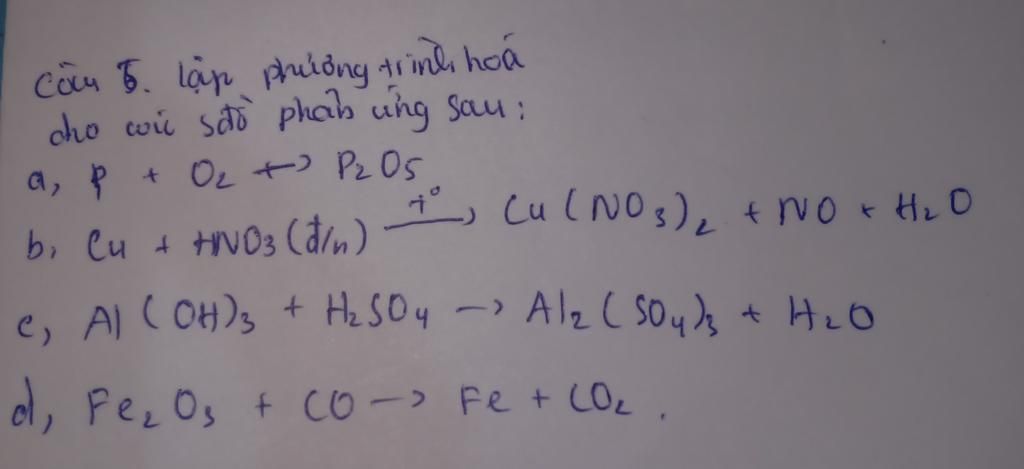 Câu 5. lập phương trình hoá
cho các sđồ phản ứng sau:
a, P + O2 → P2O5
b, Cu + HNO3 (đ/n) t° → Cu(NO3)2 + NO + H2O
c, Al(OH)3 + H2SO4 → Al2(SO4)3 + H2O
d, Fe2O3 + CO → Fe + CO2.